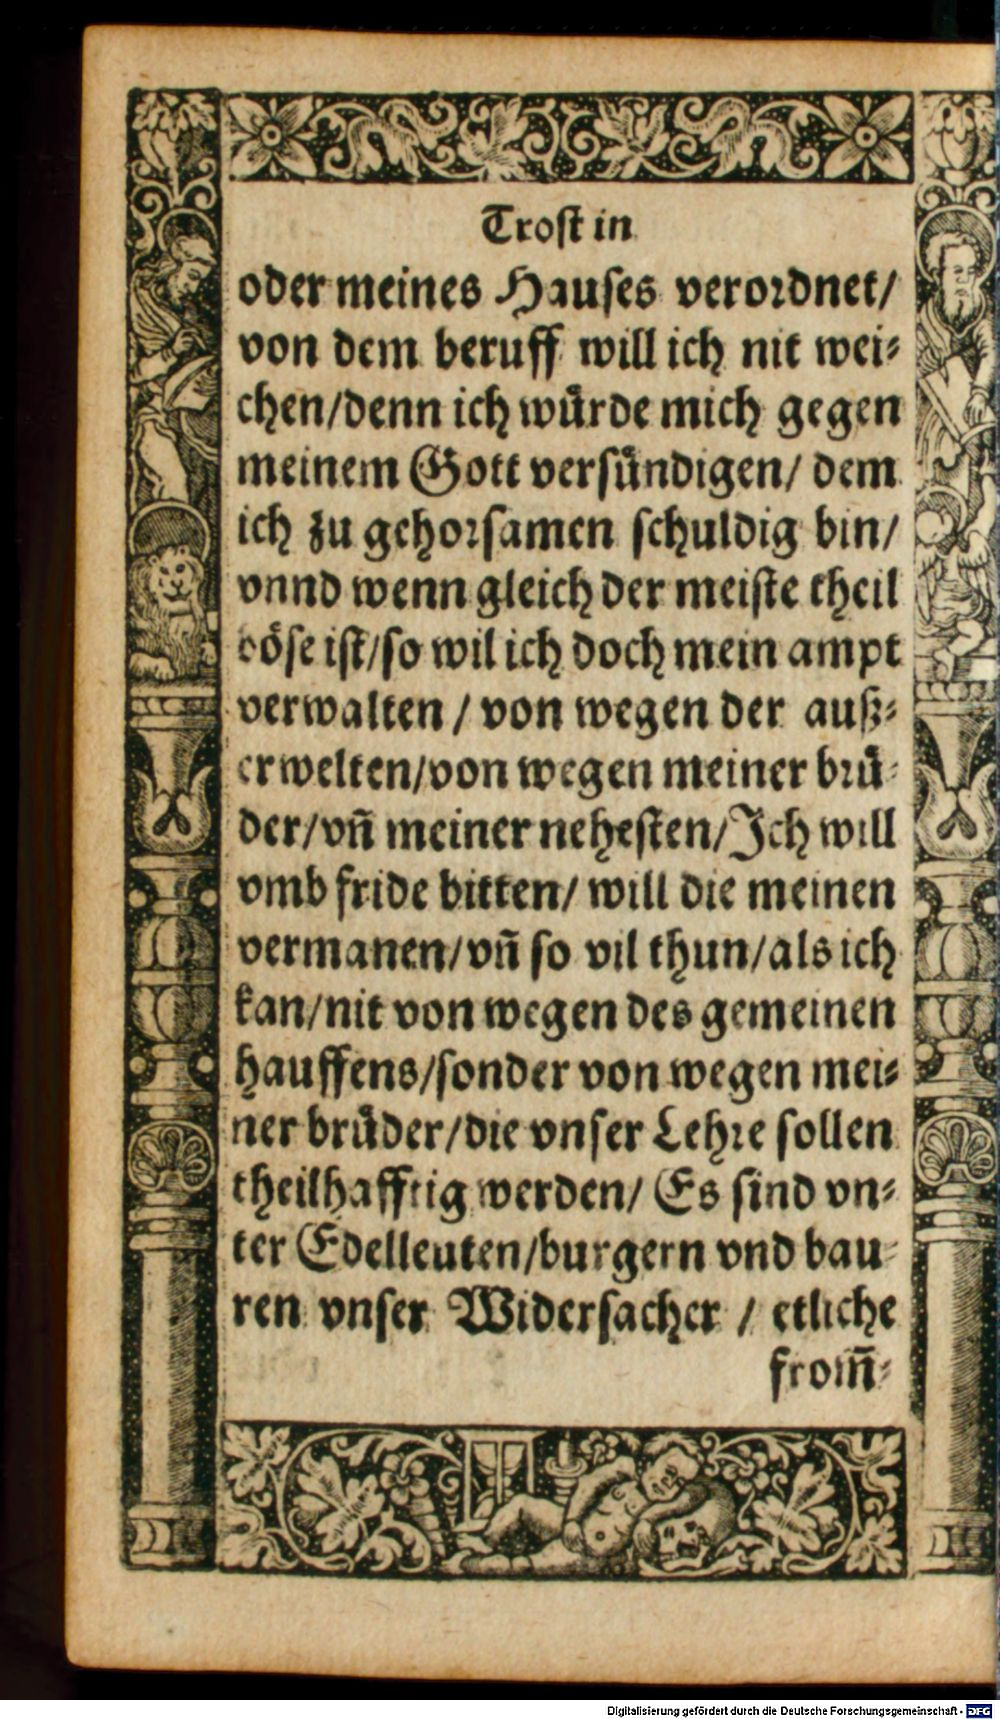 Trost in
oder meines Hauses verordnet/
von dem beruff will ich nit wei⸗
chen/denn ich wuͤrde mich gegen
meinem Gott versuͤndigen/ dem
ich zu gehorsamen schuldig bin/
vnnd wenn gleich der meiste theil
boͤse ist/so wil ich doch mein ampt
verwalten / von wegen der auß⸗
erwelten/von wegen meiner bruͤ⸗
der/vn̄ meiner nehesten/Ich will
vmb fride bitten/ will die meinen
vermanen/vn̄ so vil thun/als ich
kan/nit von wegen des gemeinen
hauffens/sonder von wegen mei⸗
ner bruͤder/die vnser Lehre sollen
theilhafftig werden/ Es sind vn⸗
ter Edelleuten/burgern vnd bau⸗
ren vnser Widersacher / etliche
from̄⸗
Digitalisierung gefördert durch die Deutsche Forschungsgemeinschaft - DFG